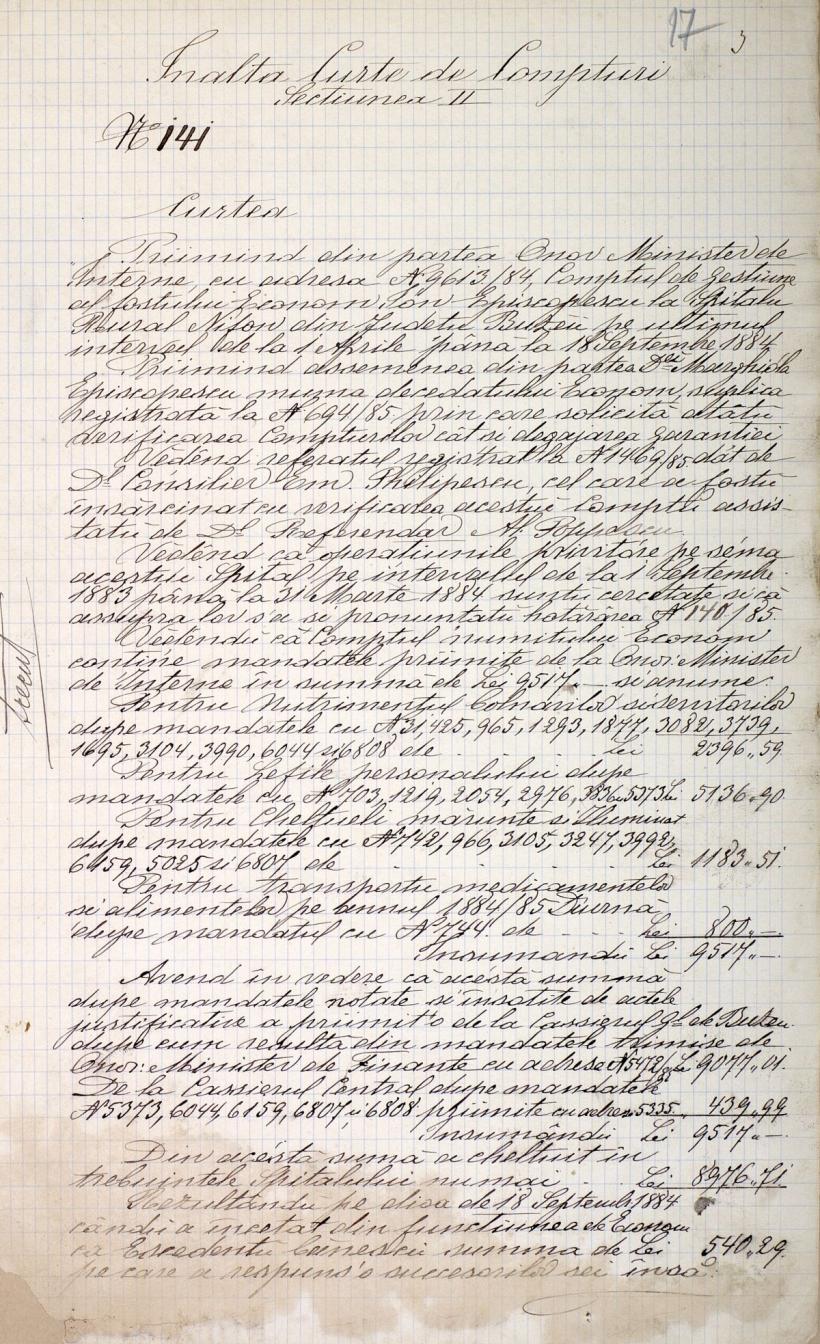 17 3
Inalta Curte de Compturi
Sectiunea II
Nº 141
Curtea
Priimind din partea Onor Minister de
Interne, cu adresa Nº 9613/84, Comptul de gestiune
al fostului Econom Ión Episcopescu la Spitalu
Rural Nifon din Judetu Buzĕŭ pe ultimul
interval de la 1 Aprile pâna la 18 Septembre 1884
Priimind assemenea din partea Dnei Marghióla
Episcopescu muma decedatului Econom, suplica
registrată la Nº 694/85. prin care solicită atâtu
verificarea Compturilor cât si degajarea garantiei
Vĕdĕnd referatul registrat la Nº 1469/85 dat de
Dl Consilier Em. Philipescu, cel care a fostu
însărcinat cu verificarea acestui Comptu assis-
tatu de Dl Referendar Al. Poppescu.
Vĕdĕnd ca operatiunile privitóre pe séma
acestui Spital pe intervalul de la 1 Septembr.
1883 pâna la 31 Marte 1884 suntu cercetate si că
assupra lor s'a si pronuntatu hotărârea Nº 140/85.
Vedendu că Comptul numitului Econom
contine mandatele priimite de la Onor. Minister
de Interne în summă de Lei 9517 „ — si anume:
Pentru Nutrimentul bolnavilor si servitorilor
dupe mandatele cu Nº 31, 425, 965, 1293, 1877, 3082, 3739,
1695, 3104, 3990, 6044 si 6808 de . . . Lei 2396 „ 59
Pentru Lefile personalului dupe
mandatele cu Nº 703, 1219, 2054, 2976, 3836 si 5373 Lei 5136 „ 90.
Pentru Cheltueli mărunte si Iluminat
dupe mandatele cu Nº 742, 966, 3105, 3247, 3992,
6159, 5025 si 6807 de . . . Lei 1183 „ 51.
Pentru transportu medicamentelor
si alimentelor pe annul 1884/85 Diurnă
dupe mandatul cu Nº 744 de - - - Lei 800 „ —
Insumandu Lei 9517 „ —.
Avend în vedere că acéstă summă
dupe mandatele notate si insotite de actele
justificative a priimit'o de la Cassierul Gl. de Buzeu.
dupe cum resultă din mandatele trimise de
Onor. Minister de Finante cu adresa Nº 5472/ Lei 9077 „ 01.
De la Cassierul Central dupe mandatele
Nº 5373, 6044, 6159, 6807 si 6808 priimite cu adresa 5335 „ 439 „ 99
Insumându Lei 9517 „ —.
Din acéstă sumă a cheltuit în
trebuintele Spitalului numai . . Lei 8976 „ 71
Rezultându pe diua de 18 Septembr 1884
cându a incetat din functiunea de Econom
ca Escedentu bănescu summa de Lei 540 „ 29.
pe care a respuns'o succesorilor sei însă
Trecut